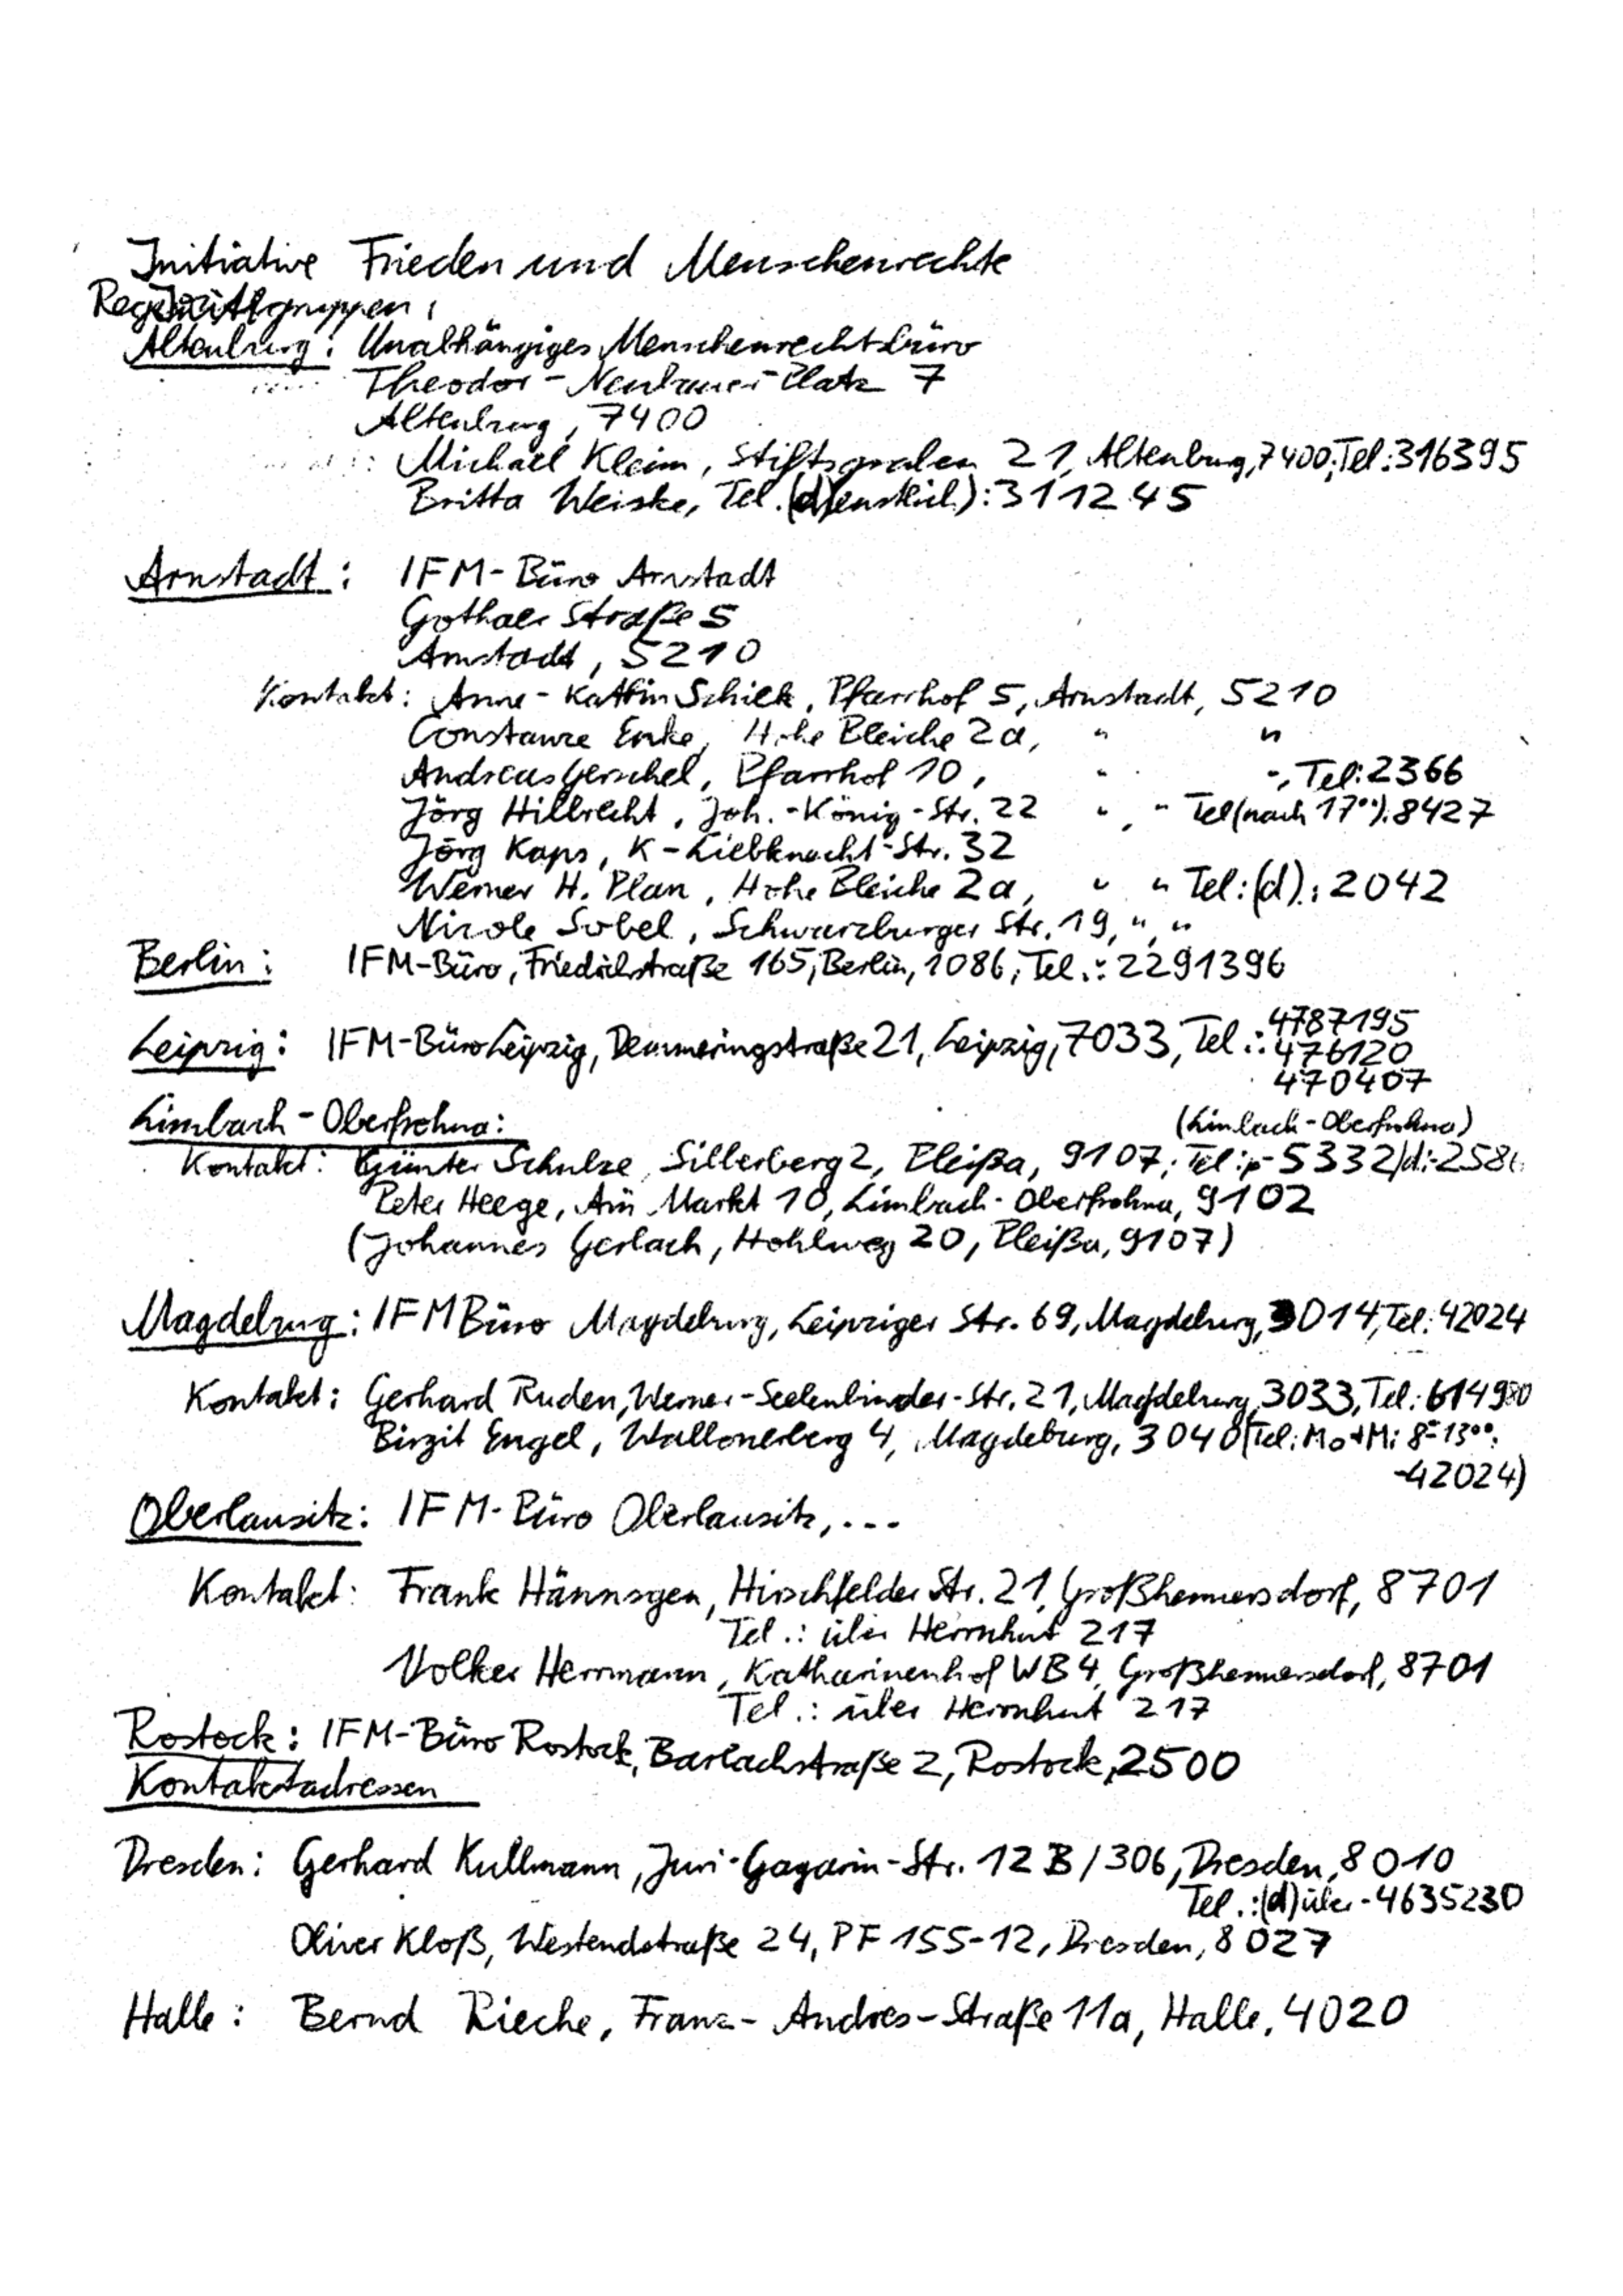 Initiative Frieden und Menschenrechte
Altenburg: Unabhängiges Menschenrechtsbüro
Theodor-Neubauer-Platz 7
Altenburg, 7400
Michael Kleim, Stiftsgraben 21, Altenburg, 7400, Tel.: 316395
Britta Weiske, Tel. (dienstlich): 311245
Arnstadt: IFM-Büro Arnstadt
Gothaer Straße 5
Arnstadt, 5210
Kontakt: Anne-Kathrin Schielk, Pfarrhof 5, Arnstadt, 5210
Constanze Enke, Hohe Bleiche 2a, " "
Andreas Gerschel, Pfarrhof 10, " ", Tel: 2366
Jörg Hilbrecht, Joh.-König-Str. 22 ", " Tel (nach 17°°): 8427
Jörg Kaps, K-Liebknecht-Str. 32
Werner H. Plan, Hohe Bleiche 2a, " " Tel: (d).: 2042
Nicole Sobel, Schwarzburger Str. 19, ", "
Berlin: IFM-Büro, Friedrichstraße 165, Berlin, 1086, Tel.: 2291396
Leipzig: IFM-Büro Leipzig, Demmeringstraße 21, Leipzig, 7033, Tel.: 4787195
476120
470407
Limbach-Oberfrohna: (Limbach-Oberfrohna)
Kontakt: Günter Schulze, Sillerberg 2, Pleißa, 9107, Tel: p-5332/d:-258
Peter Heege, Am Markt 10, Limbach-Oberfrohna, 9102
(Johannes Gerlach, Hohlweg 20, Pleißa, 9107)
Magdeburg: IFM Büro Magdeburg, Leipziger Str. 69, Magdeburg, 3014, Tel.: 42024
Kontakt: Gerhard Ruden, Werner-Seelenbinder-Str. 21, Magdeburg, 3033, Tel.: 614980
Birgit Engel, Wallonerberg 4, Magdeburg, 3040 (Tel: Mo+Mi 8-13°°:
-42024)
Oberlausitz: IFM-Büro Oberlausitz, ...
Kontakt: Frank Hännsgen, Hirschfelder Str. 21, Großhennersdorf, 8701
Tel.: über Herrnhut 217
Volker Herrmann, Katharinenhof WB 4, Großhennersdorf, 8701
Tel.: über Herrnhut 217
Rostock: IFM-Büro Rostock, Barlachstraße 2, Rostock, 2500
Kontaktadressen
Dresden: Gerhard Kullmann, Juri-Gagarin-Str. 12 B/306, Dresden, 8010
Tel.: (d) über -4635230
Oliver Kloß, Westendstraße 24, PF 155-12, Dresden, 8027
Halle: Bernd Rieche, Franz-Andres-Straße 11a, Halle, 4020